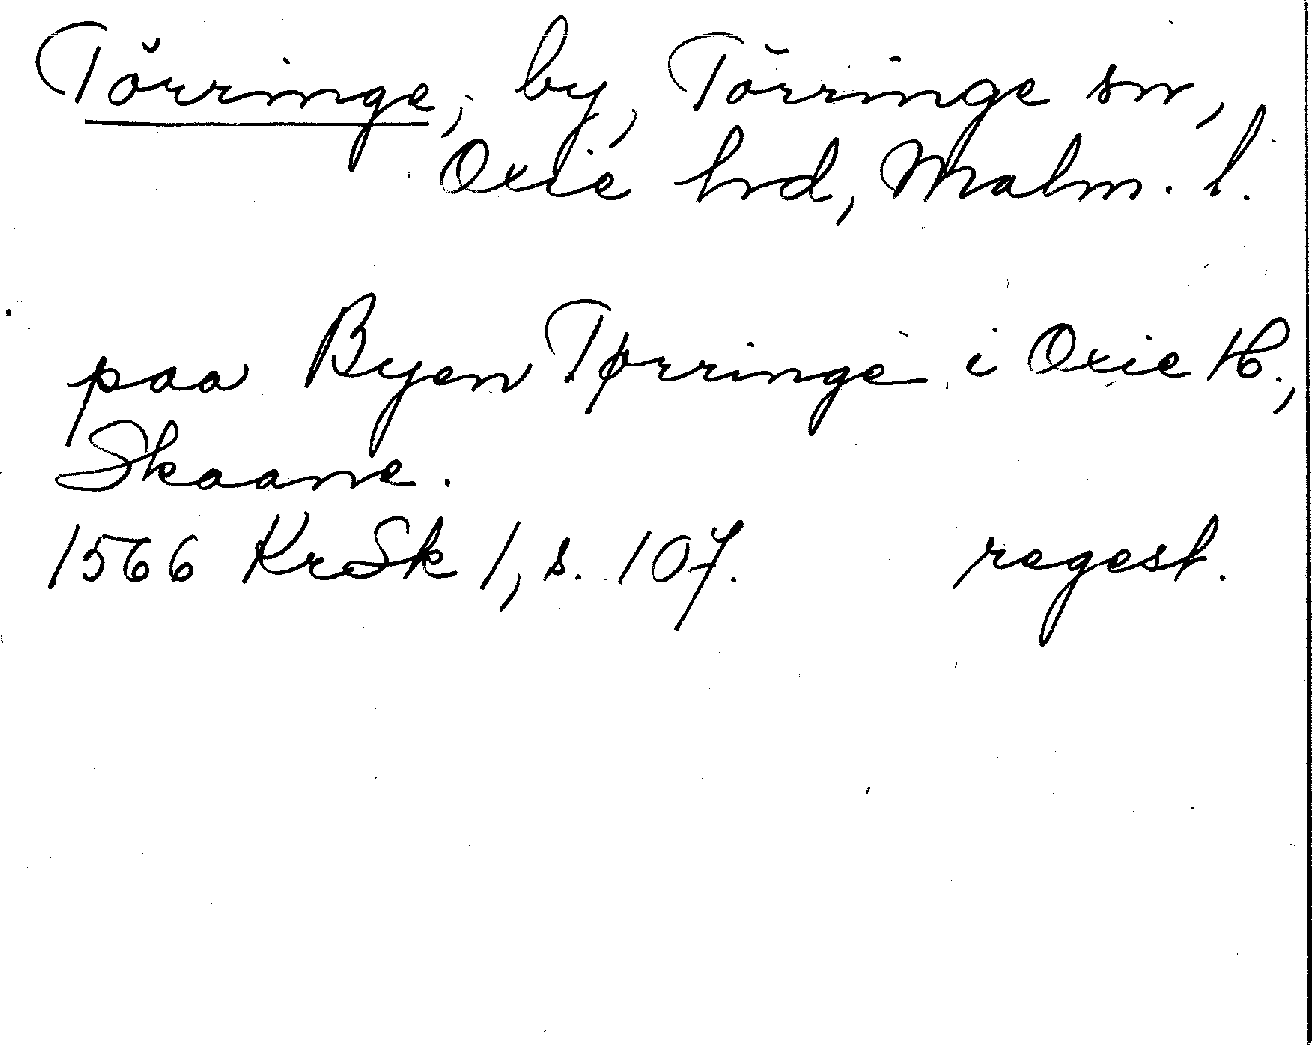 Törringe, by, Törringe sn,
Oxie hrd, Malm. l.
paa Byen Tørringe i Oxie H.,
Skaane.
1566 KrSk 1, s. 107. regest.